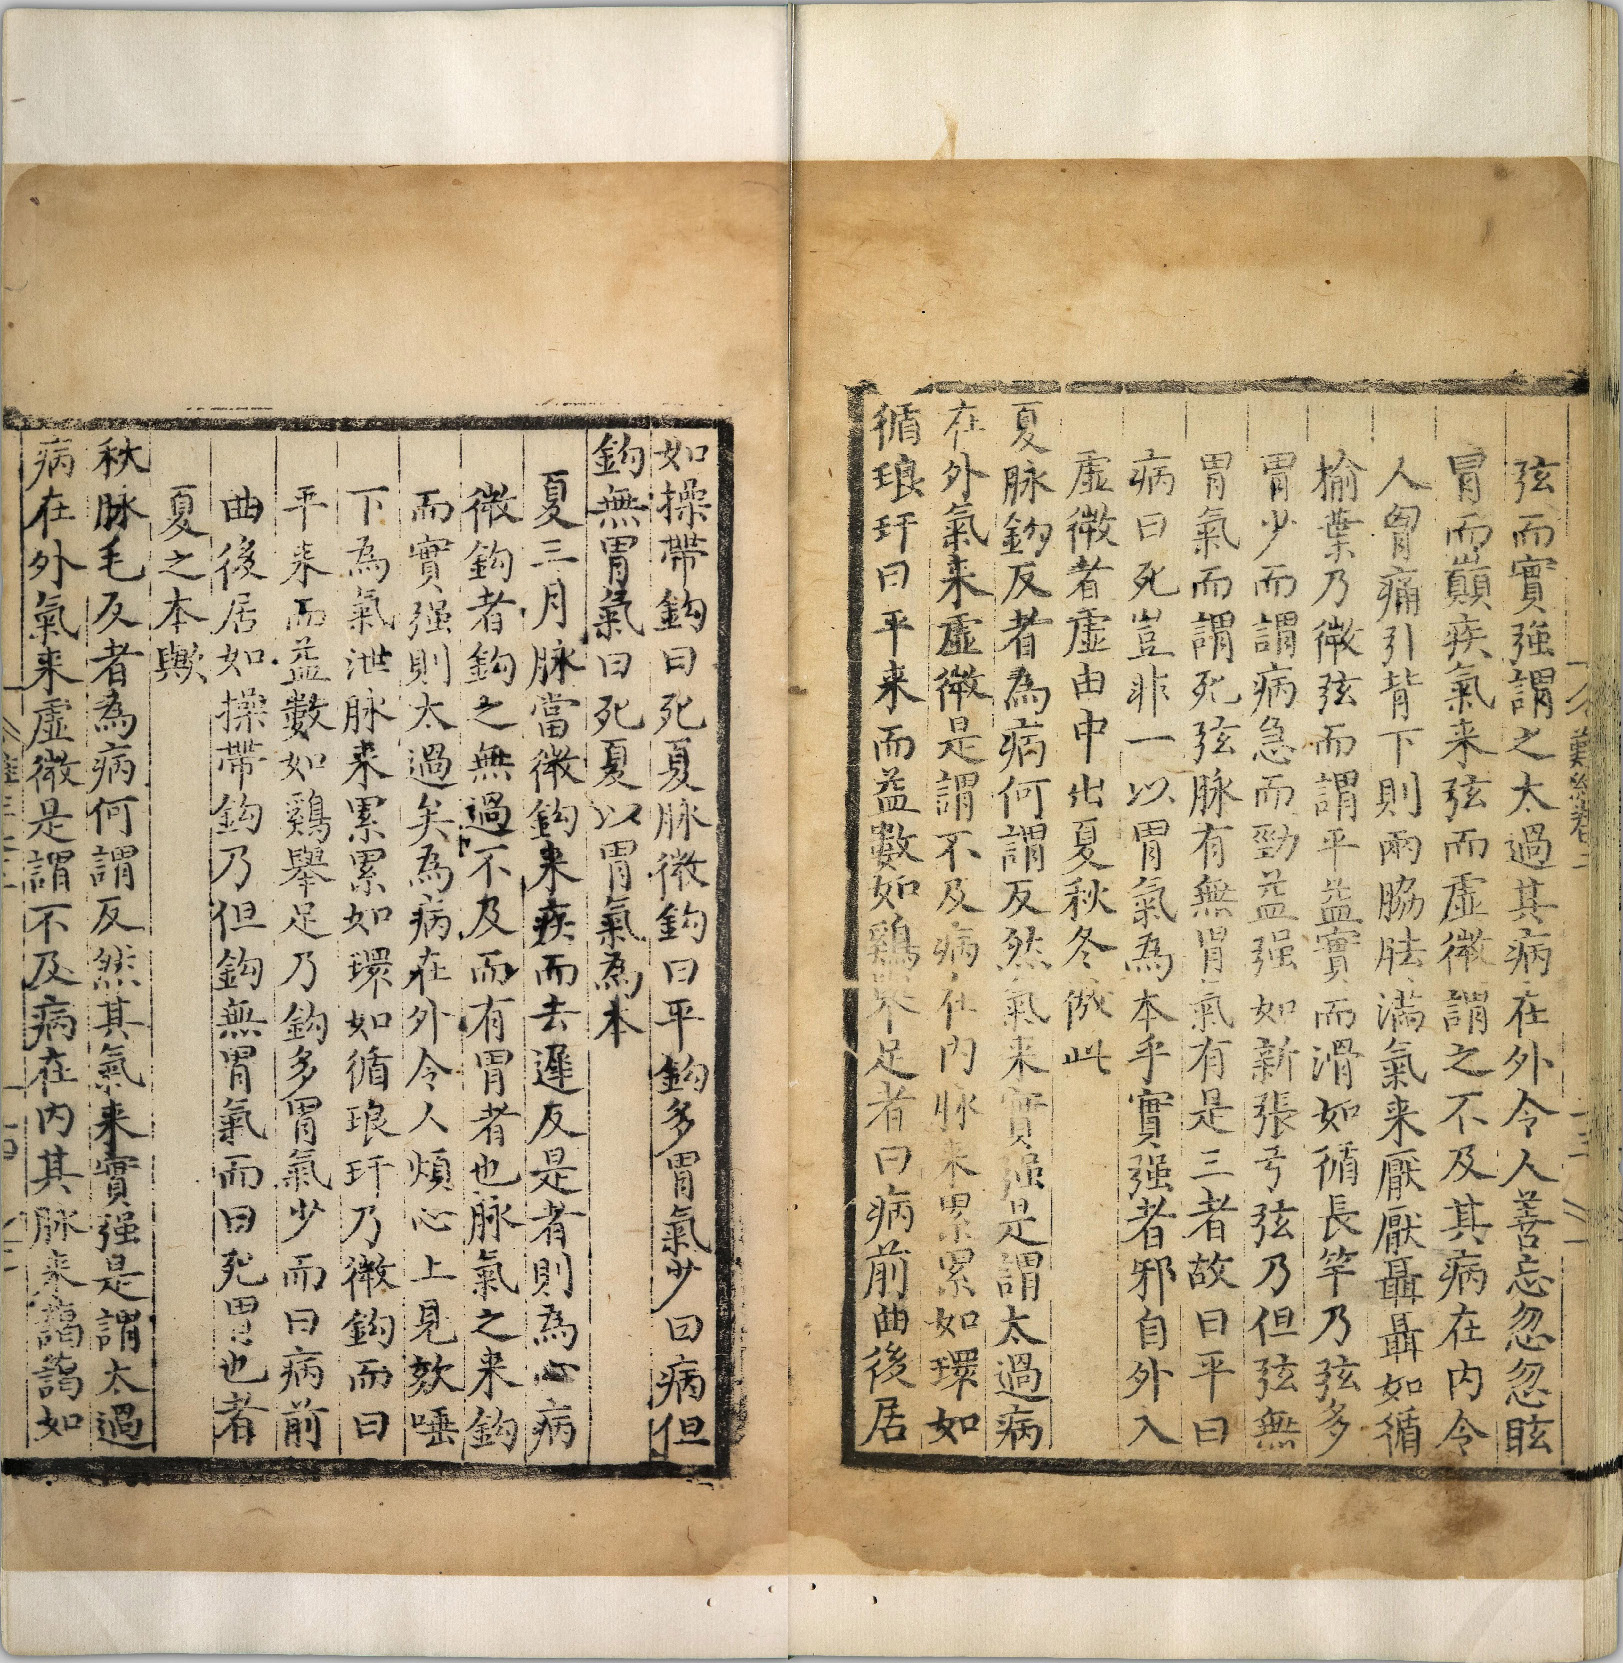 弦而實強謂之太過其病在外令人善忘忽忽眩
冒而巔疾氣来弦而虛微謂之不及其病在内令
人胷痛引背下則兩脇胠滿氣来厭厭聶聶如循
榆葉乃微弦而謂平益實而滑如循長竿乃弦多
胃少而謂病急而勁益强如新張弓弦乃但弦無
胃氣而謂死弦脉有無胃氣有是三者故曰平曰
病曰死豈非一以胃氣為本乎實强者邪自外入
虛微者虛由中出夏秋冬倣此
夏脉鈎反者為病何謂反然氣来實强是謂太過病
在外氣来虛微是謂不及病在内脉来累累如環如
循琅玕曰平来而益數如鷄舉足者曰病前曲後居
如操帶鈎曰死夏脉微鈎曰平鈎多胃氣少曰病但
鈎無胃氣曰死夏以胃氣為本
夏三月脉當微鈎来疾而去遲反是者則為心病
微鈎者鈎之無過不及而有胃者也脉氣之来鈎
而實强則太過矣為病在外令人煩心上見欬唾
下為氣泄脉来累累如環如循琅玕乃微鈎而曰
平来而益數如鷄舉足乃鈎多胃氣少而曰病前
曲後居如操帶鈎乃但鈎無胃氣而曰死胃也者
夏之本歟
秋脉毛反者為病何謂反然其氣来實强是謂太過
病在外氣来虛微是謂不及病在内其脉来藹藹如